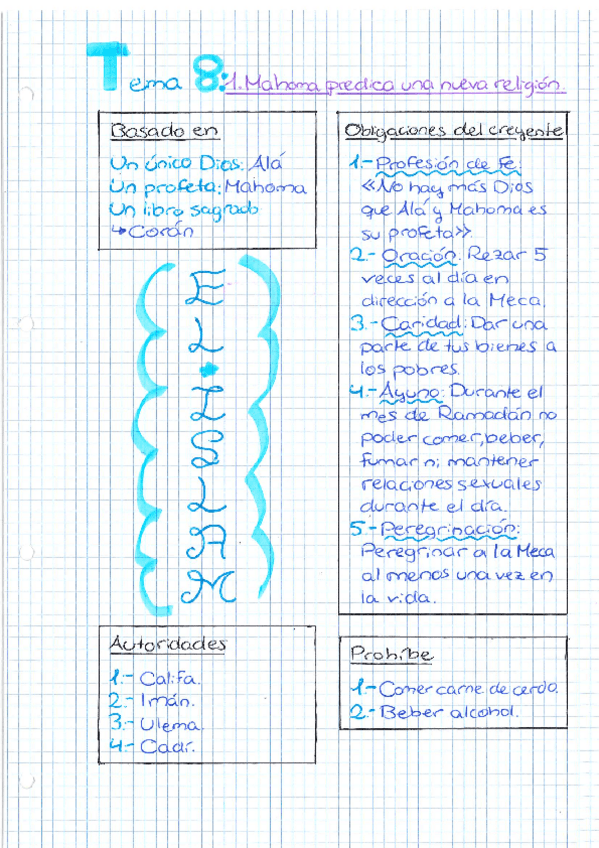 Tema 8: 1. Mahoma predica una nueva religión.
Basado en
Un único Dios: Alá
Un profeta: Mahoma
Un libro sagrado
↳ Corán
EL ISLAM
Autoridades
1.- Califa.
2.- Imán.
3.- Ulema.
4.- Cadí.
Obligaciones del creyente
1.- Profesión de Fe:
«No hay más Dios
que Alá y Mahoma es
su profeta»
2.- Oración: Rezar 5
veces al día en
dirección a la Meca.
3.- Caridad: Dar una
parte de tus bienes a
los pobres.
4.- Ayuno: Durante el
mes de Ramadán no
poder comer, beber,
fumar ni mantener
relaciones sexuales
durante el día.
5.- Peregrinación:
Peregrinar a la Meca
al menos una vez en
la vida.
Prohíbe
1.- Comer carne de cerdo.
2.- Beber alcohol.